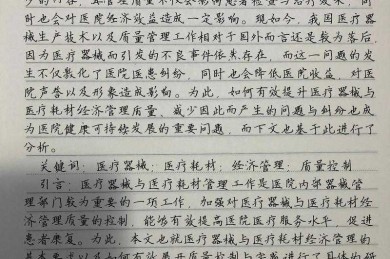 时也会对医院经济效益造成一定影响。现如今，我国医疗器
械生产技术以及质量管理工作相对于国外而言还是较为落后，
因为医疗器械而引发的不良事件依然存在，而这一问题的发
生不仅激化了医院医患纠纷，同时也会降低医院收益，对医
院声誉以及形象造成影响。为此，如何有效提升医疗器械与
医疗耗材经济管理质量，减少因此而产生的问题与纠纷也成
为医院健康可持续发展的重要问题，而下文也基于此进行了
分析。
关键词：医疗器械；医疗耗材；经济管理；质量控制
引言：医疗器械与医疗耗材管理工作是医院内部器械管
理部门较为重要的一项工作，加强对医疗器械与医疗耗材经
济管理质量的控制，能够有效提高医院医疗服务水平，促进
患者康复。为此，本文也就医疗器械与医疗耗材经济管理的